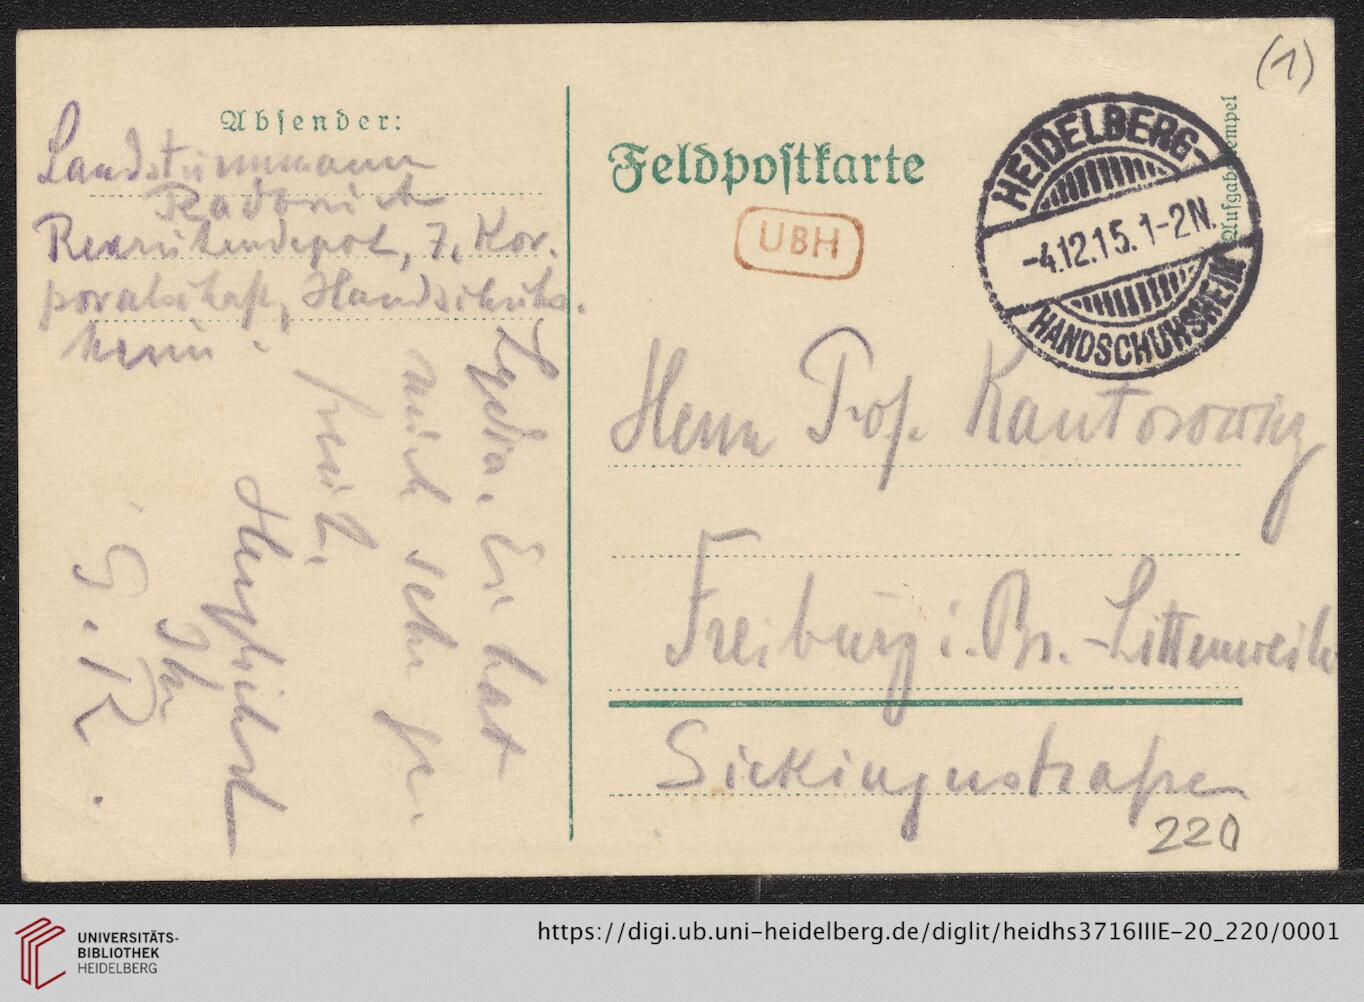 (1)
Absender:
Landsturmmann
Radbruch
Rekrutendepot, 7. Kor-
poralschaft, Handschuhs-
heim.
Lydia. Er hat
mich sehr ge-
freut.
Herzlichst
Ihr
G. R.
Feldpostkarte
Aufgabestempel
UBH
HEIDELBERG-
-4.12.15.1-2N.
HANDSCHUHSHEIM
Herrn Prof. Kantorowicz
Freiburg i. Br.-Littenweiler
Sickingenstraße
220
UNIVERSITÄTS-
BIBLIOTHEK
HEIDELBERG
https://digi.ub.uni-heidelberg.de/diglit/heidhs3716IIIE-20_220/0001